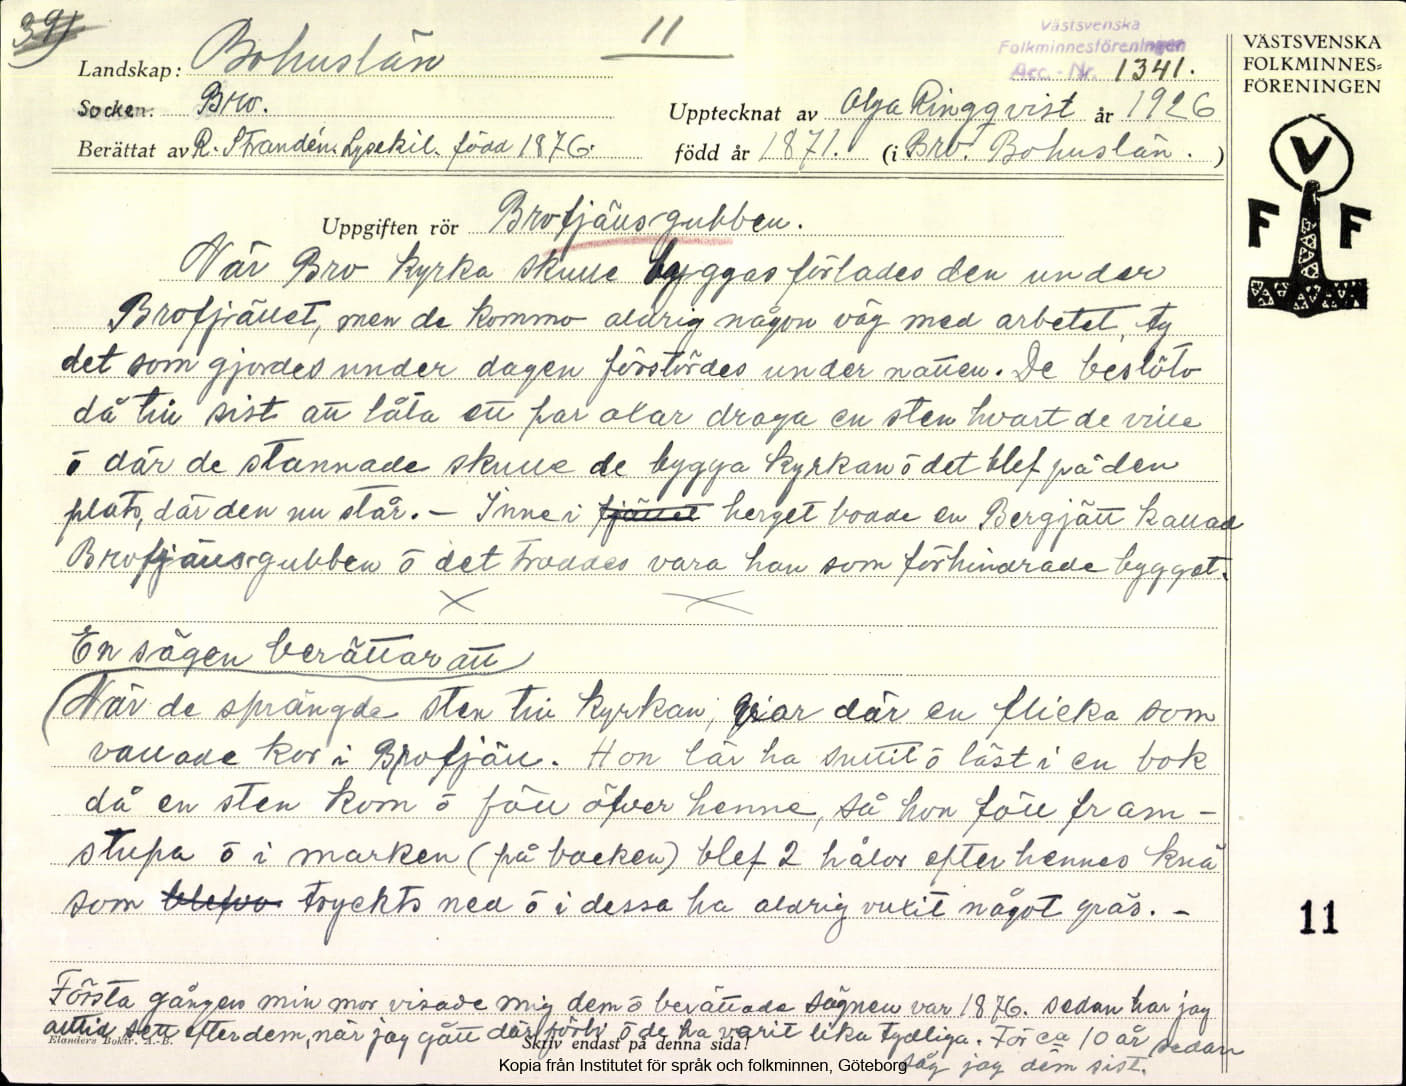 39)
11
Västsvenska
Folkminnesföreningen
Acc.-Nr. 1341.
VÄSTSVENSKA
FOLKMINNES=
FÖRENINGEN
V
F F
Landskap: Bohuslän
Socken: Bro.
Upptecknat av Olga Ringqvist år 1926
Berättat av R. Strandén. Lysekil. född 1876.
född år 1871. (i Bro. Bohuslän. )
Uppgiften rör Brofjällsgubben.
När Bro kyrka skulle byggas förlades den under
Brofjället, men de kommo aldrig någon väg med arbetet, ty
det som gjordes under dagen förstördes under natten. De beslöto
då till sist att låta ett par oxar draga en sten hvart de ville
ō där de stannade skulle de bygga kyrkan ō det blef på den
plats, där den nu står. – Inne i fjället berget bodde en Bergjätt kallad
Brofjällsgubben ō det troddes vara han som förhindrade bygget.
En sägen berättar att
(När de sprängde sten till kyrkan, var där en flicka som
vallade kor i Brofjäll. Hon lär ha suttit ō läst i en bok
då en sten kom ō föll öfver henne, så hon föll fram-
stupa ō i marken (på backen) blef 2 hålor efter hennes knä
som blefvo tryckts ned ō i dessa ha aldrig vuxit något gräs. –
Första gången min mor visade mig dem ō berättade sägnen var 1876. sedan har jag
alltid sett efter dem, när jag gått där förbi ō de ha varit lika tydliga. För ca 10 år sedan
såg jag dem sist.
Elanders Boktr. A.-B.
Skriv endast på denna sida!
11
Kopia från Institutet för språk och folkminnen, Göteborg